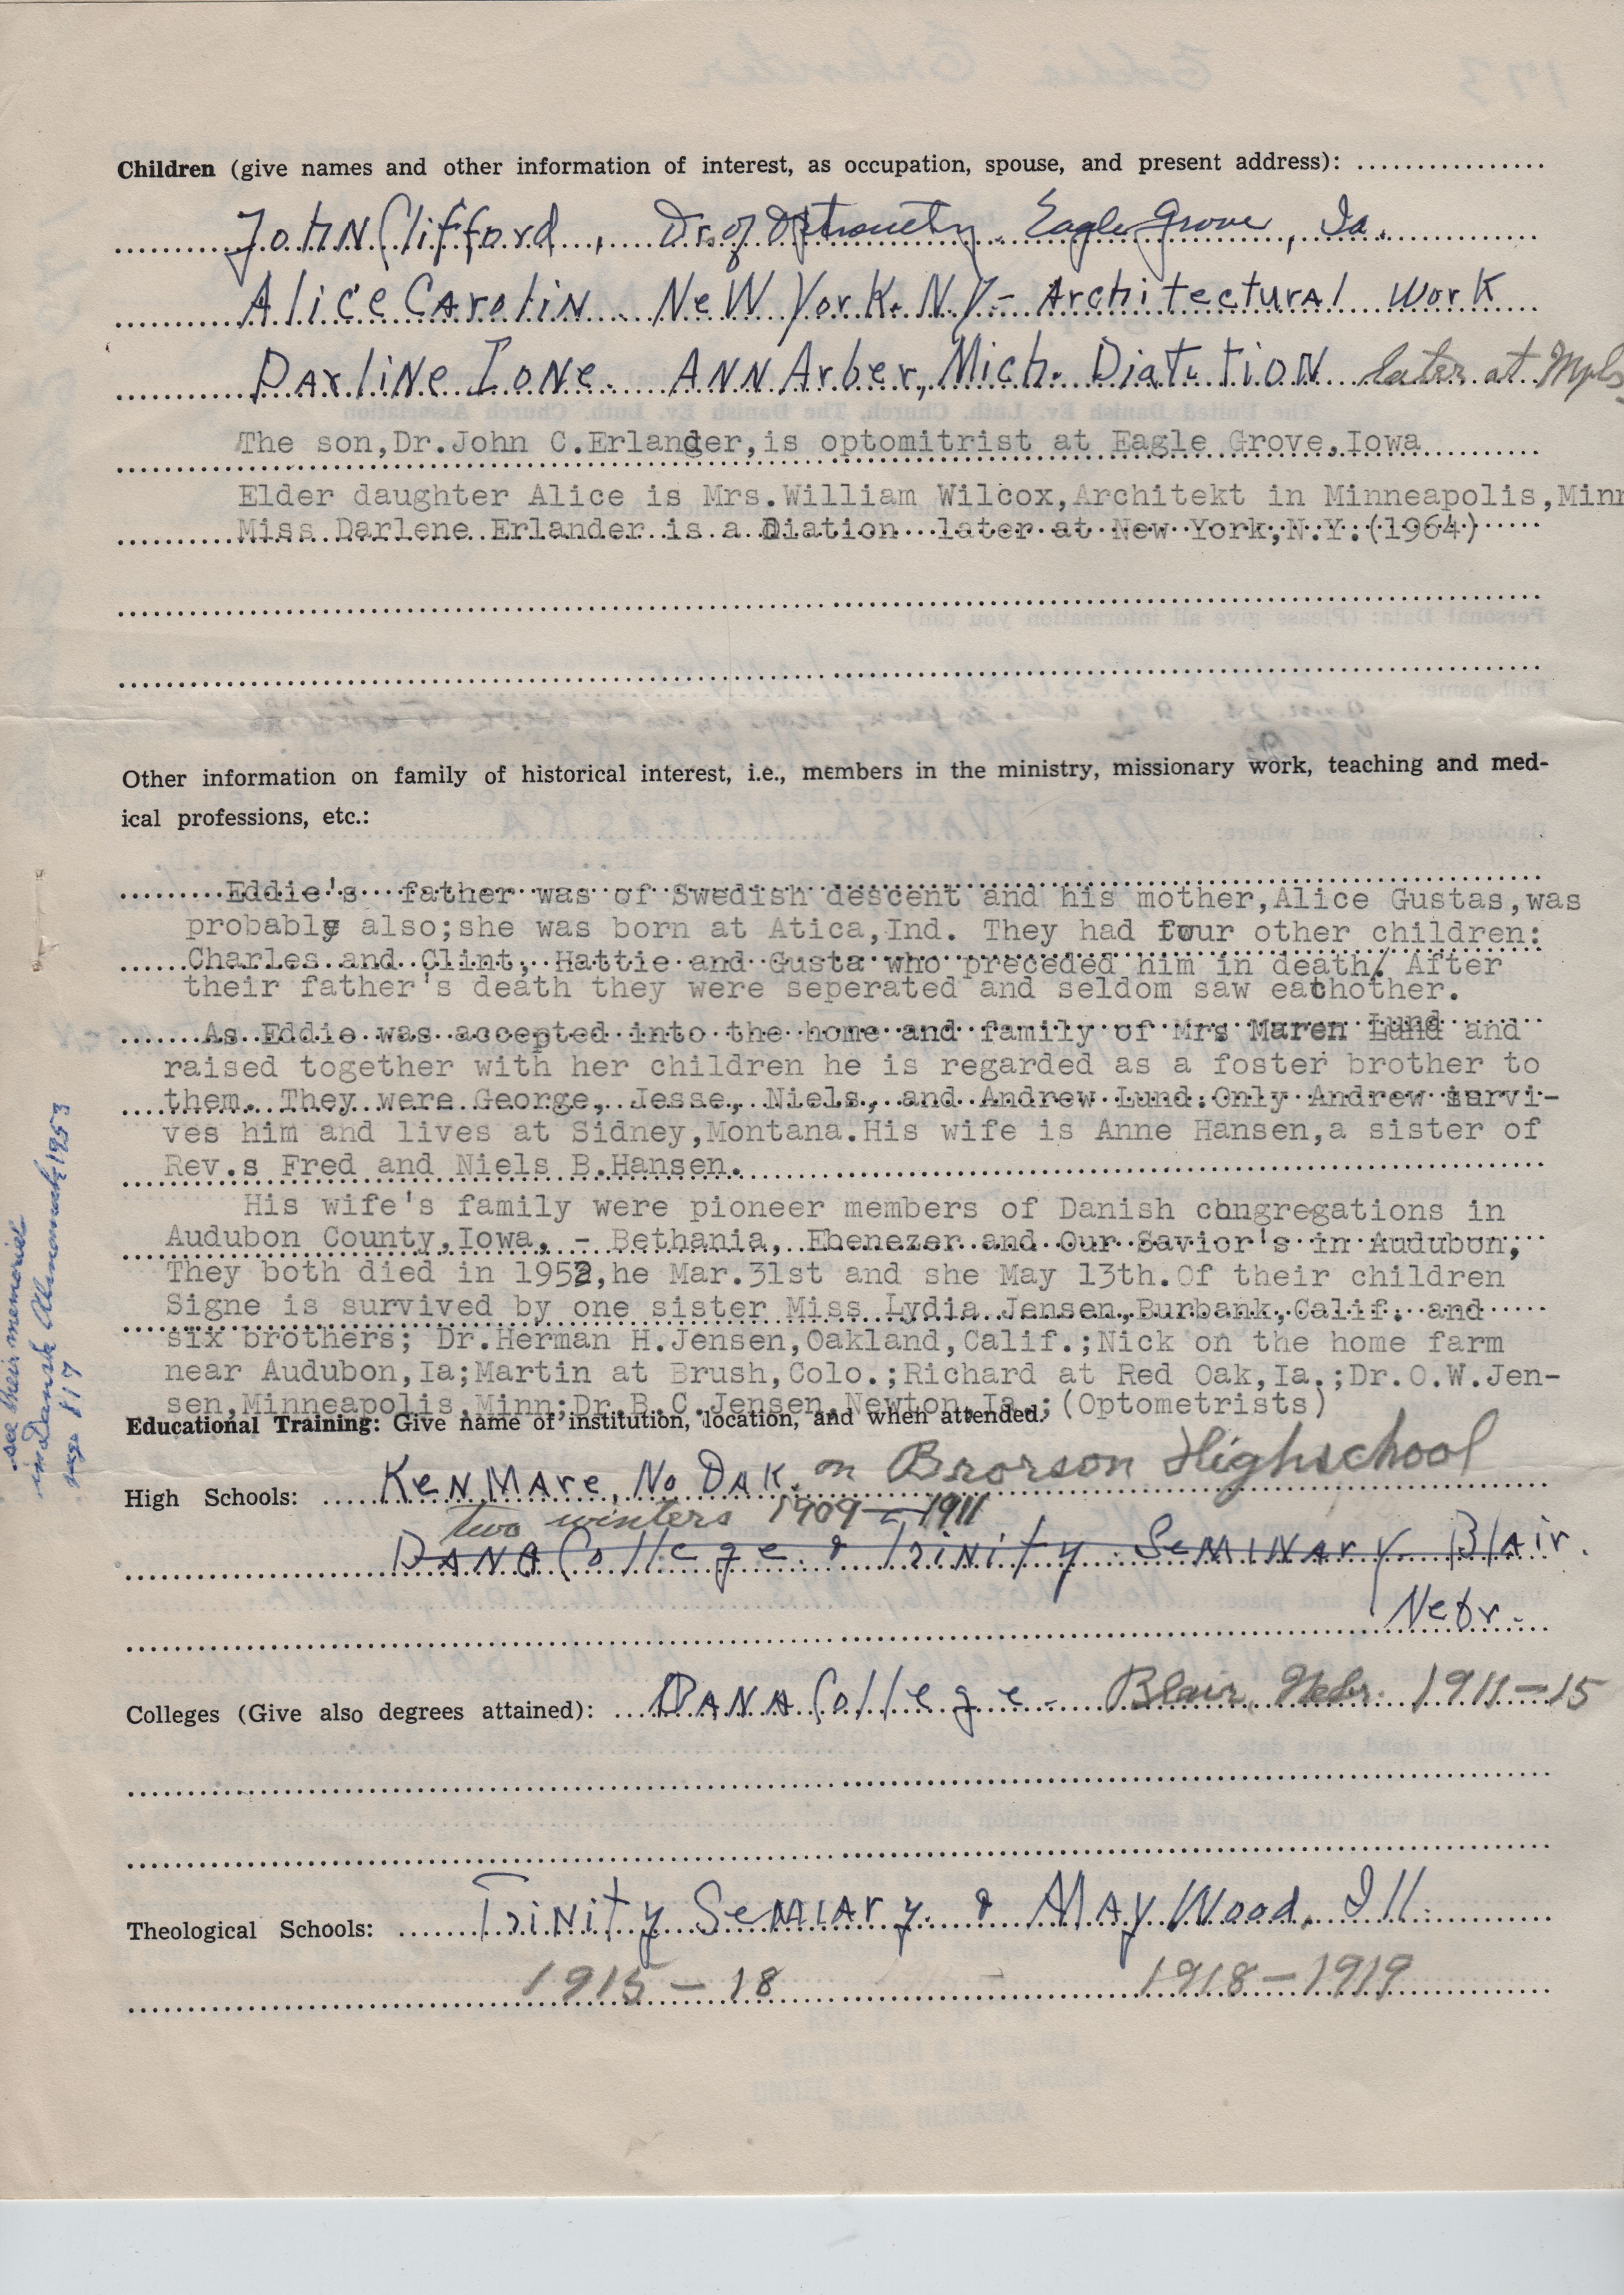 Children (give names and other information of interest, as occupation, spouse, and present address):
John Clifford, Dr. of Optometry Eagle Grove, Ia.
Alice Carolin New York. N.Y.- Architectural Work
Darline Ione. Ann Arber, Mich. Diatition later at Mpls
The son,Dr.John C.Erlander,is optomitrist at Eagle Grove,Iowa
Elder daughter Alice is Mrs.William Wilcox,Architekt in Minneapolis,Minn
Miss Darlene Erlander is a Diation later at New York,N.Y.(1964)
Other information on family of historical interest, i.e., members in the ministry, missionary work, teaching and med-
ical professions, etc.:
Eddie's father was of Swedish descent and his mother,Alice Gustas,was
probably also;she was born at Atica,Ind. They had four other children:
Charles and Clint, Hattie and Gusta who preceded him in death. After
their father's death they were seperated and seldom saw eachother.
As Eddie was accepted into the home and family of Mrs Maren Lund and
raised together with her children he is regarded as a foster brother to
them. They were George, Jesse, Niels, and Andrew Lund.Only Andrew survi-
ves him and lives at Sidney,Montana.His wife is Anne Hansen,a sister of
Rev.s Fred and Niels B.Hansen.
His wife's family were pioneer members of Danish congregations in
Audubon County,Iowa, - Bethania, Ebenezer and Our Savior's in Audubon,
They both died in 1952,he Mar.31st and she May 13th.Of their children
Signe is survived by one sister Miss Lydia Jensen,Burbank,Calif. and
six brothers; Dr.Herman H.Jensen,Oakland,Calif.;Nick on the home farm
near Audubon,Ia;Martin at Brush,Colo.;Richard at Red Oak,Ia.;Dr.O.W.Jen-
sen,Minneapolis,Minn;Dr.B.C.Jensen,Newton,Ia.;(Optometrists)
see their memorial
in Dansk Almanak 1953
page 117
Educational Training: Give name of institution, location, and when attended.
High Schools: Kenmare, No Dak. on Brorson Highschool
two winters 1909-1911
Dana College & Trinity Seminary Blair.
Nebr.
Colleges (Give also degrees attained): Dana College - Blair, Nebr. 1911-15
Theological Schools: Trinity Semiary & MayWood, Ill.
1915-18 1918-1919